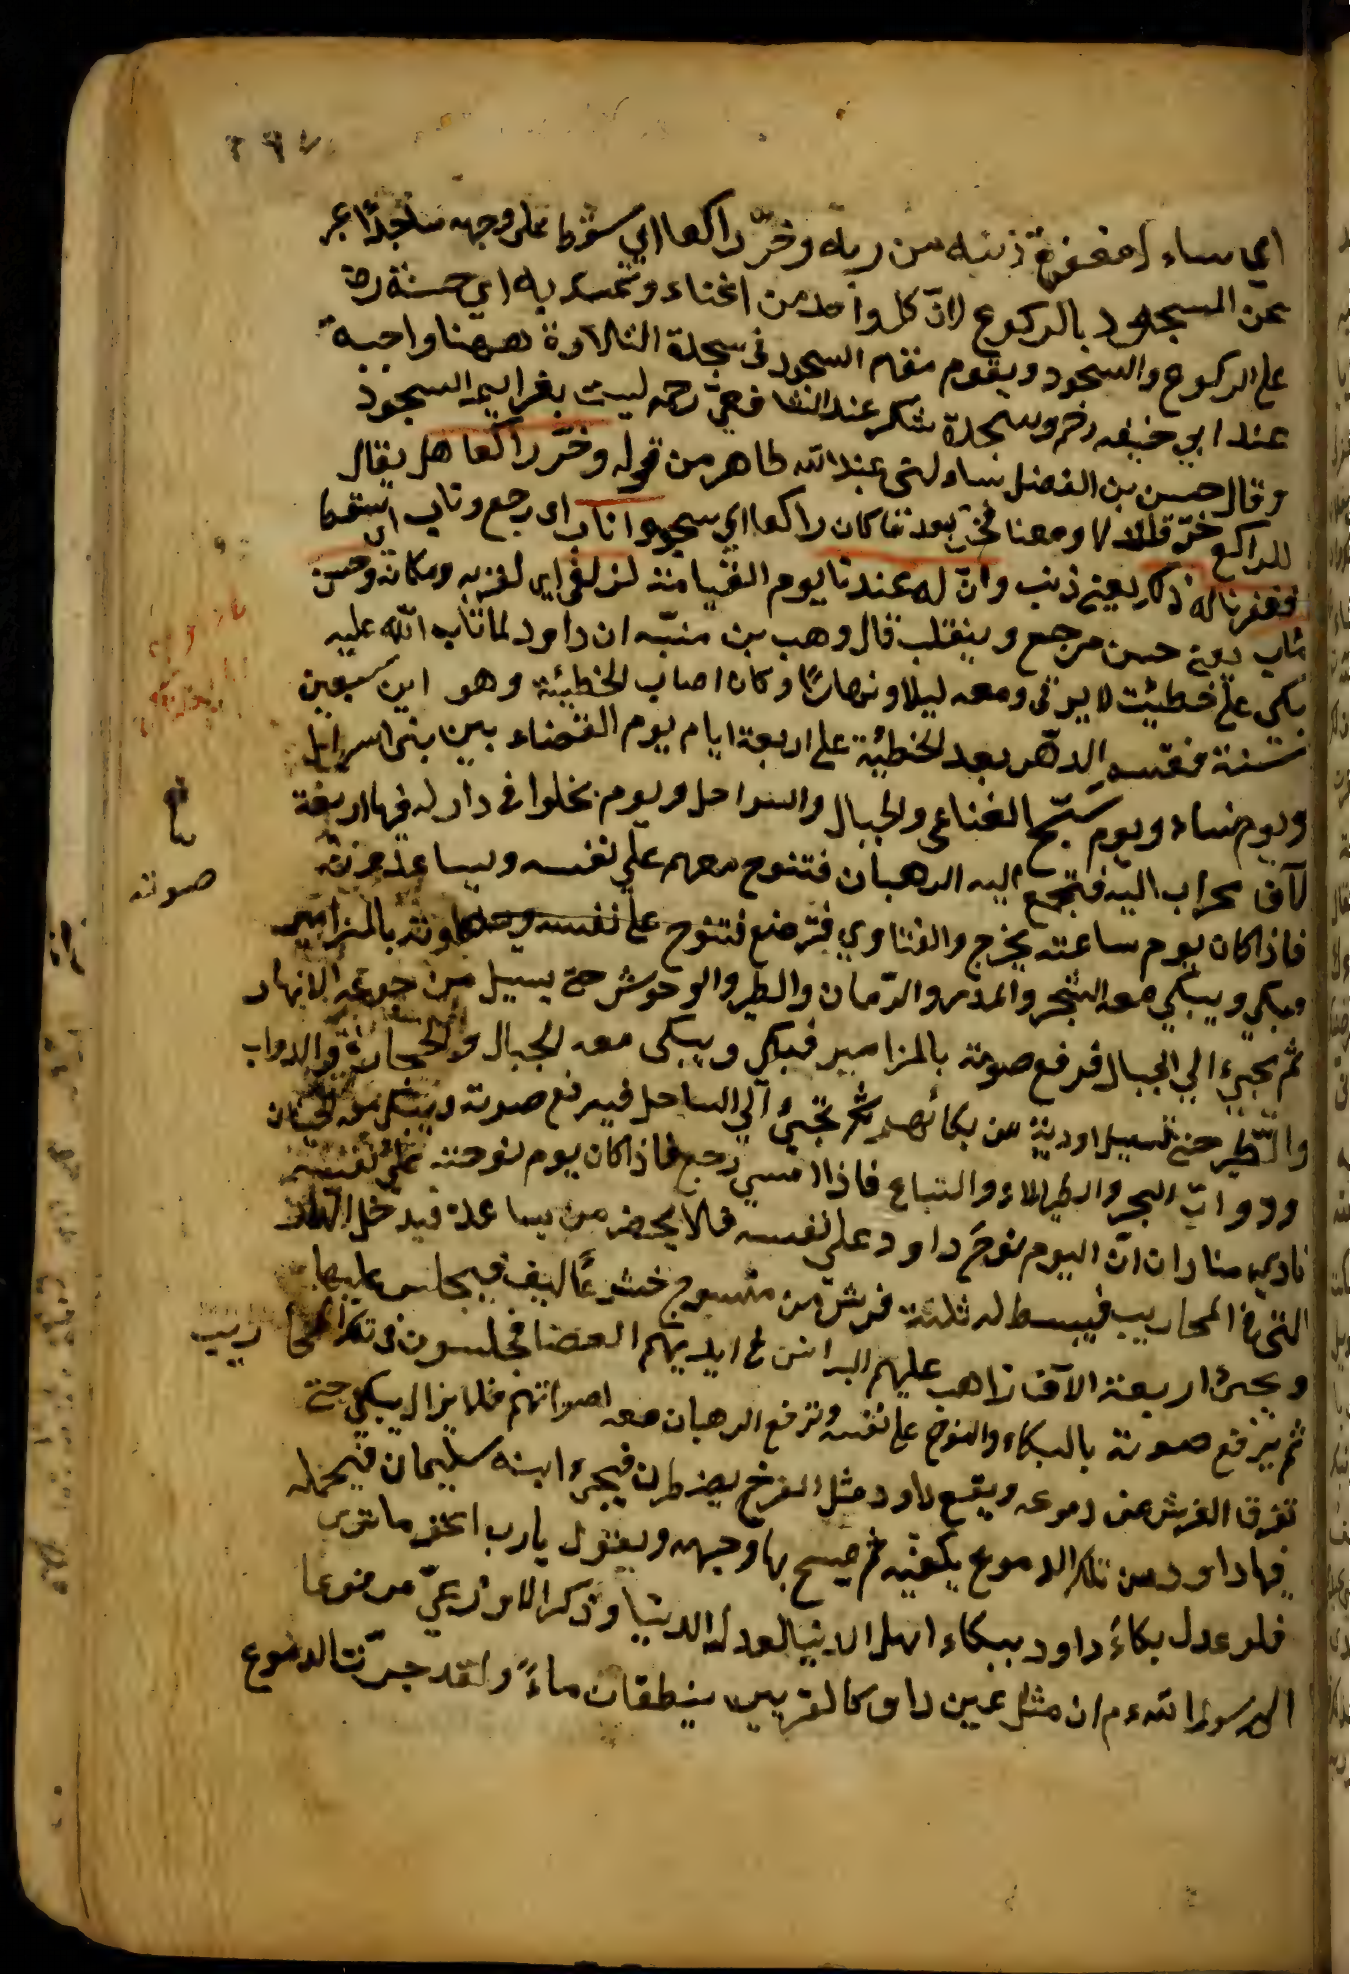 ٢٩٧
اي ساء لمغفرة ذنبه من ربه وخرّ راكعا اي سقط على وجهه ساجدًا عبر
عن السجود بالركوع لانّ كل واحد من انحناء وتمسك به اي حسنة رح
على الركوع والسجود ويقوم مقام السجود في سجدة التلاوة ههنا واجبة
عند ابي حنيفه رحمه وسجدة شكر عند الشافعيّ رحمه ليست بعزايم السجود
وقال حسن بن الفضل ساء لنى عبد الله طاهر من قوله وخرّ راكعا هل يقال
للراكع خرّ قلت لا ومعنا فخرّ بعد ما كان راكعا اي سجد واناب اى رجع وتاب
فغفرنا له ذلك يعنى ذنب وانّ له عندنا يوم القيامة لزلفى اي لقربه ومكانة وحسن
مئاب يعنى حسن مرجع وينقلب قال وهب بن منبّه ان داود لما تاب الله عليه
بكى على خطيئت لا يرقى ومعه ليلا ونهارًا وكان اصاب الخطيئة وهو ابن سبعين
سنة فقسم الدهر بعد الخطية على اربعة ايام يوم القضاء بين بنى اسرايل
ويوم نساء ويوم يسّبح الفناعى والجبال والسواحل ويوم يخلوا فى دار له فيها اربعة
لآف محراب اليه فتجمع اليه الرهبان فتنوح معهم على نفسه ويساعد حزنة
فاذا كان يوم ساعته يخرج والفناوي فترضع فتنوح على نفسه بالمزامير
فيبكى ويبكي معه الشجر والمدر والرّمان والطير والوحوش حتى يسيل من دموعه الانهار
ثم يجيء الي الجبال فرفع صوته بالمزامير فيبكى ويبكى معه الجبال والحجارة والدواب
والطّير حتى تسيل اودية من بكائهم ثم تجئ الي الساحل فيرفع صوته ويبكى معه الحيتان
ودوابّ البحر والطير الماء والسباع فاذا امسى رجع فاذا كان يوم نوحته على نفسه
نادي منادان انّ اليوم نوحَ داود على نفسه فلا يحضر من يساعده فيدخل الدار
التى فى المحاريب فيبسط له ثلثة فرش من مسوح خشوعًا ليف فيجلس عليها
ويجئ اربعة الآف راهب عليهم البرانس فى ايديهم العصا فجلسون فى تلك المحاريب
ثم يرفع صوته بالبكاء والنوح على نفسه وترفع الرهبان معه اصواتهم فلا يزال يبكي حتى
تغرق الفرش من دموعه ويقع داود مثل الفرخ يضطرب فيجيء ابنه سليمان فيحمله
فيها داود من تلك الدموع بكفيّه ثم يمسح بها وجهه ويقول يارب اغفر ما ترى
فلو عدل بكاءُ داود ببكاء اهل الدنيا لعدل الدنيا وذكر الاوزعيّ مرفوعا
الى رسول الله ء م ان مثل عين داود كالقربين ينطقان ماءً ولقد جرّت الدموع
صوته